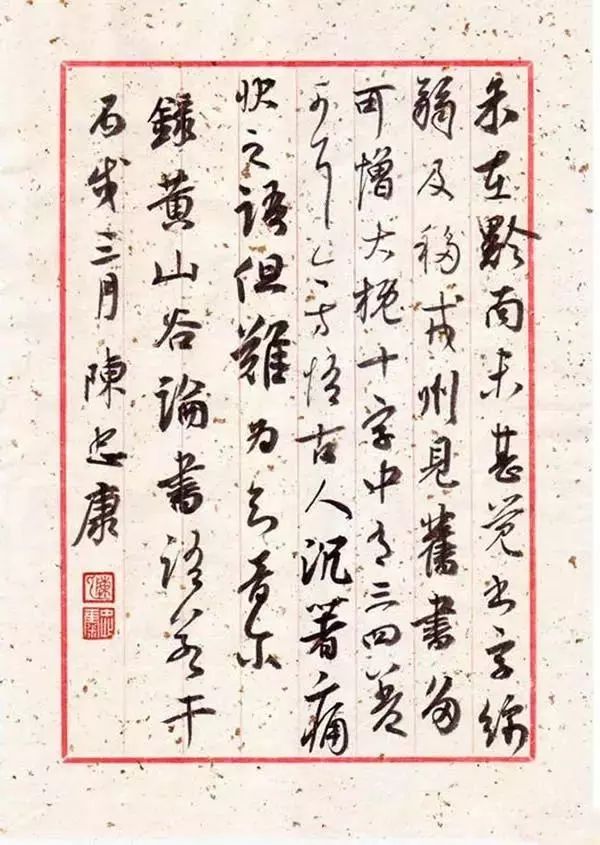 余在黔南未甚觉书字绵
弱及移戎州見舊書多
可憎大概十字中有三四差
可耳今方悟古人沉著痛
快之語但難为知音尔
錄黄山谷論書语若干
丙戌三月陳忠康